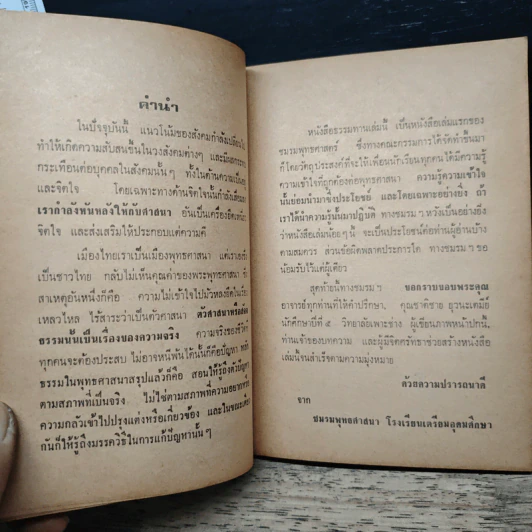 คำนำ
ในปัจจุบันนี้ แนวโน้มของสังคมกำลังเปลี่ยนไป
ทำให้เกิดความสับสนขึ้นในวงสังคมต่างๆ และมีผลกระทบ
กระเทือนต่อบุคคลในสังคมนั้นๆ ทั้งในด้านความเป็นอยู่
และจิตใจ โดยเฉพาะทางด้านจิตใจนั้นกำลังเสื่อมลง
เรากำลังหันหลังให้กับศาสนา อันเป็นเครื่องยึดเหนี่ยว
จิตใจ และส่งเสริมให้ประกอบแต่ความดี
เมืองไทยเราเป็นเมืองพุทธศาสนา แต่เราเองซึ่ง
เป็นชาวไทย กลับไม่เห็นคุณค่าของพระพุทธศาสนา ทั้งนี้
สาเหตุอันหนึ่งก็คือ ความไม่เข้าใจไปมัวหลงยึดในเรื่อง
เหลวไหล ไร้สาระว่าเป็นตัวศาสนา ตัวศาสนาหรือสัจ
ธรรมนั้นเป็นเรื่องของความจริง ความจริงของชีวิต
ทุกคนจะต้องประสบ ไม่อาจหนีพ้นได้นั้นก็คือปัญหา หลัก
ธรรมในพุทธศาสนาสรุปแล้วก็คือ สอนให้รู้ถึงตัวปัญหา
ตามสภาพที่เป็นจริง ไม่ใช่ตามสภาพที่ความอยากหรือ
ความกลัวเข้าไปปรุงแต่งหรือเกี่ยวข้อง และในขณะเดียว
กันก็ให้รู้ถึงมรรควิธีในการแก้ปัญหานั้นๆ
หนังสือธรรมทานเล่มนี้ เป็นหนังสือเล่มแรกของ
ชมรมพุทธศาสตร์ ซึ่งทางคณะกรรมการได้จัดทำขึ้นมา
ก็โดยวัตถุประสงค์ที่จะให้เพื่อนนักเรียนทุกคน ได้มีความรู้
ความเข้าใจที่ถูกต้องต่อพุทธศาสนา ความรู้ความเข้าใจ
นั้นย่อมนำมาซึ่งประโยชน์ และโดยเฉพาะอย่างยิ่ง ถ้า
เราได้นำความรู้นั้นมาปฏิบัติ ทางชมรมฯ หวังเป็นอย่างยิ่ง
ว่าหนังสือเล่มน้อยๆ นี้ จะเป็นประโยชน์ต่อท่านผู้อ่านบ้าง
ตามสมควร ส่วนข้อผิดพลาดประการใด ทางชมรมฯ ขอ
น้อมรับไว้แต่ผู้เดียว
สุดท้ายนี้ทางชมรมฯ ขอกราบขอบพระคุณ
อาจารย์ทุกท่านที่ให้คำปรึกษา, คุณชาติชาย
นักศึกษาปีที่ ๕ วิทยาลัยเพาะช่าง ผู้เขียนภาพหน้าปกนี้,
ท่านเจ้าของบทความ และผู้มีจิตศรัทธาช่วยสร้างหนังสือ
เล่มนี้จนสำเร็จตามความมุ่งหมาย
ด้วยความปรารถนาดี
จาก
ชมรมพุทธศาสนา โรงเรียนเตรียมอุดมศึกษา